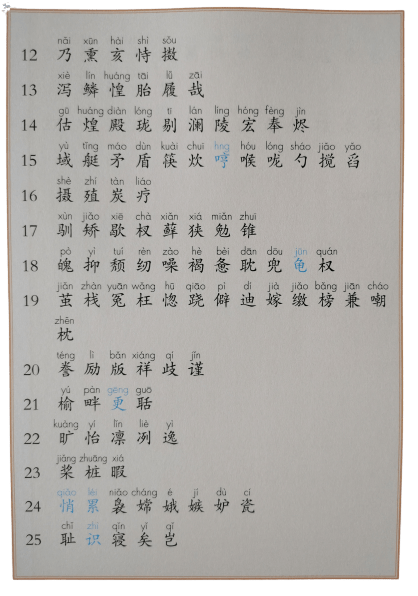 nǎi xūn hài shì sǒu
12 乃 熏 亥 恃 擞
xiè lín huáng tāi lǚ zāi
13 泻 鳞 惶 胎 履 哉
gū huáng diàn lóng tī lán líng hóng fèng jìn
14 估 煌 殿 珑 剔 澜 陵 宏 奉 烬
yù tǐng máo dùn kuài chuī hng hóu lóng sháo jiǎo yǎo
15 域 艇 矛 盾 筷 炊 哼 喉 咙 勺 搅 舀
shè zhí tàn liáo
16 摄 殖 炭 疗
xùn jiǎo xiē chà xiǎn xiá miǎn zhuī
17 驯 矫 歇 杈 藓 狭 勉 锥
pò yì tuí rèn zào hè bèi dān dōu jūn quán
18 魄 抑 颓 纫 噪 褐 惫 耽 兜 龟 权
jiǎn zhàn yuān wǎng hū qiāo pì dí jià jiǎo bǎng jiān cháo
19 茧 栈 冤 枉 惚 跷 僻 迪 嫁 缴 榜 兼 嘲
zhěn
枕
téng lì bǎn xiáng qí jǐn
20 誊 励 版 祥 歧 谨
yú pàn gēng guō
21 榆 畔 更 聒
kuàng yí lǐn liè yì
22 旷 怡 凛 冽 逸
jiǎng zhuāng xiá
23 桨 桩 暇
qiǎo léi niǎo cháng é jí dù cí
24 悄 累 袅 嫦 娥 嫉 妒 瓷
chǐ zhì qǐn yǐ qǐ
25 耻 识 寝 矣 岂